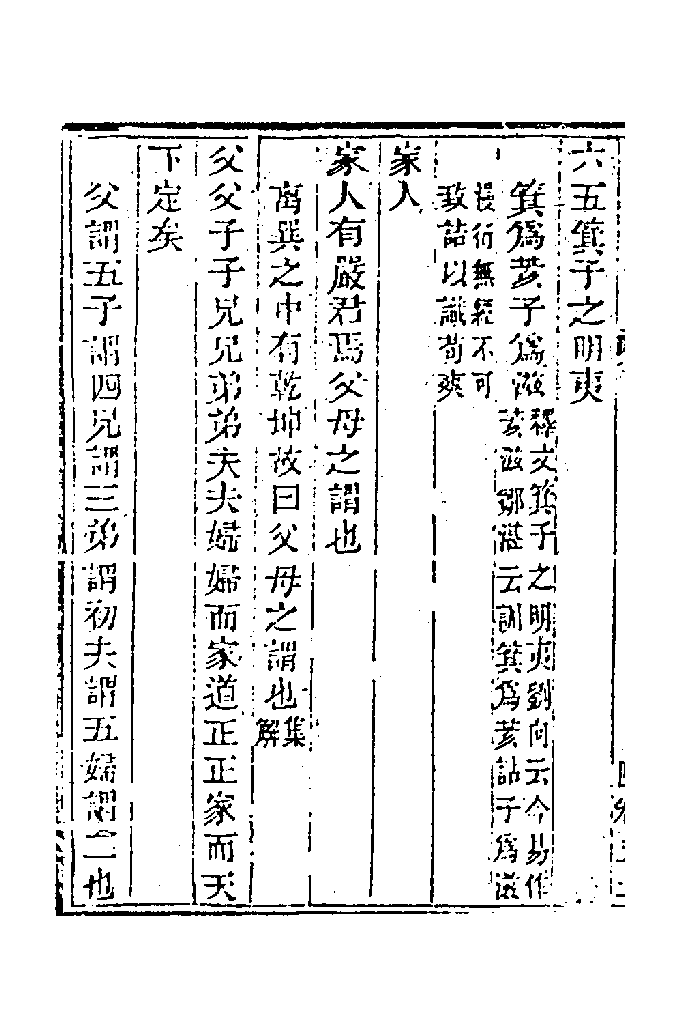 六五箕子之明夷
箕爲荄子爲滋釋文箕子之明夷劉向云今易作
荄滋鄒湛云訓箕爲荄詁子爲滋
漫衍無經不可
致詰以譏荀爽
家人
家人有嚴君焉父母之謂也
离巽之中有乾坤故曰父母之謂也集
解
父父子子兄兄弟弟夫夫婦婦而家道正正家而天
下定矣
父謂五子謂四兄謂三弟謂初夫謂五婦謂二也